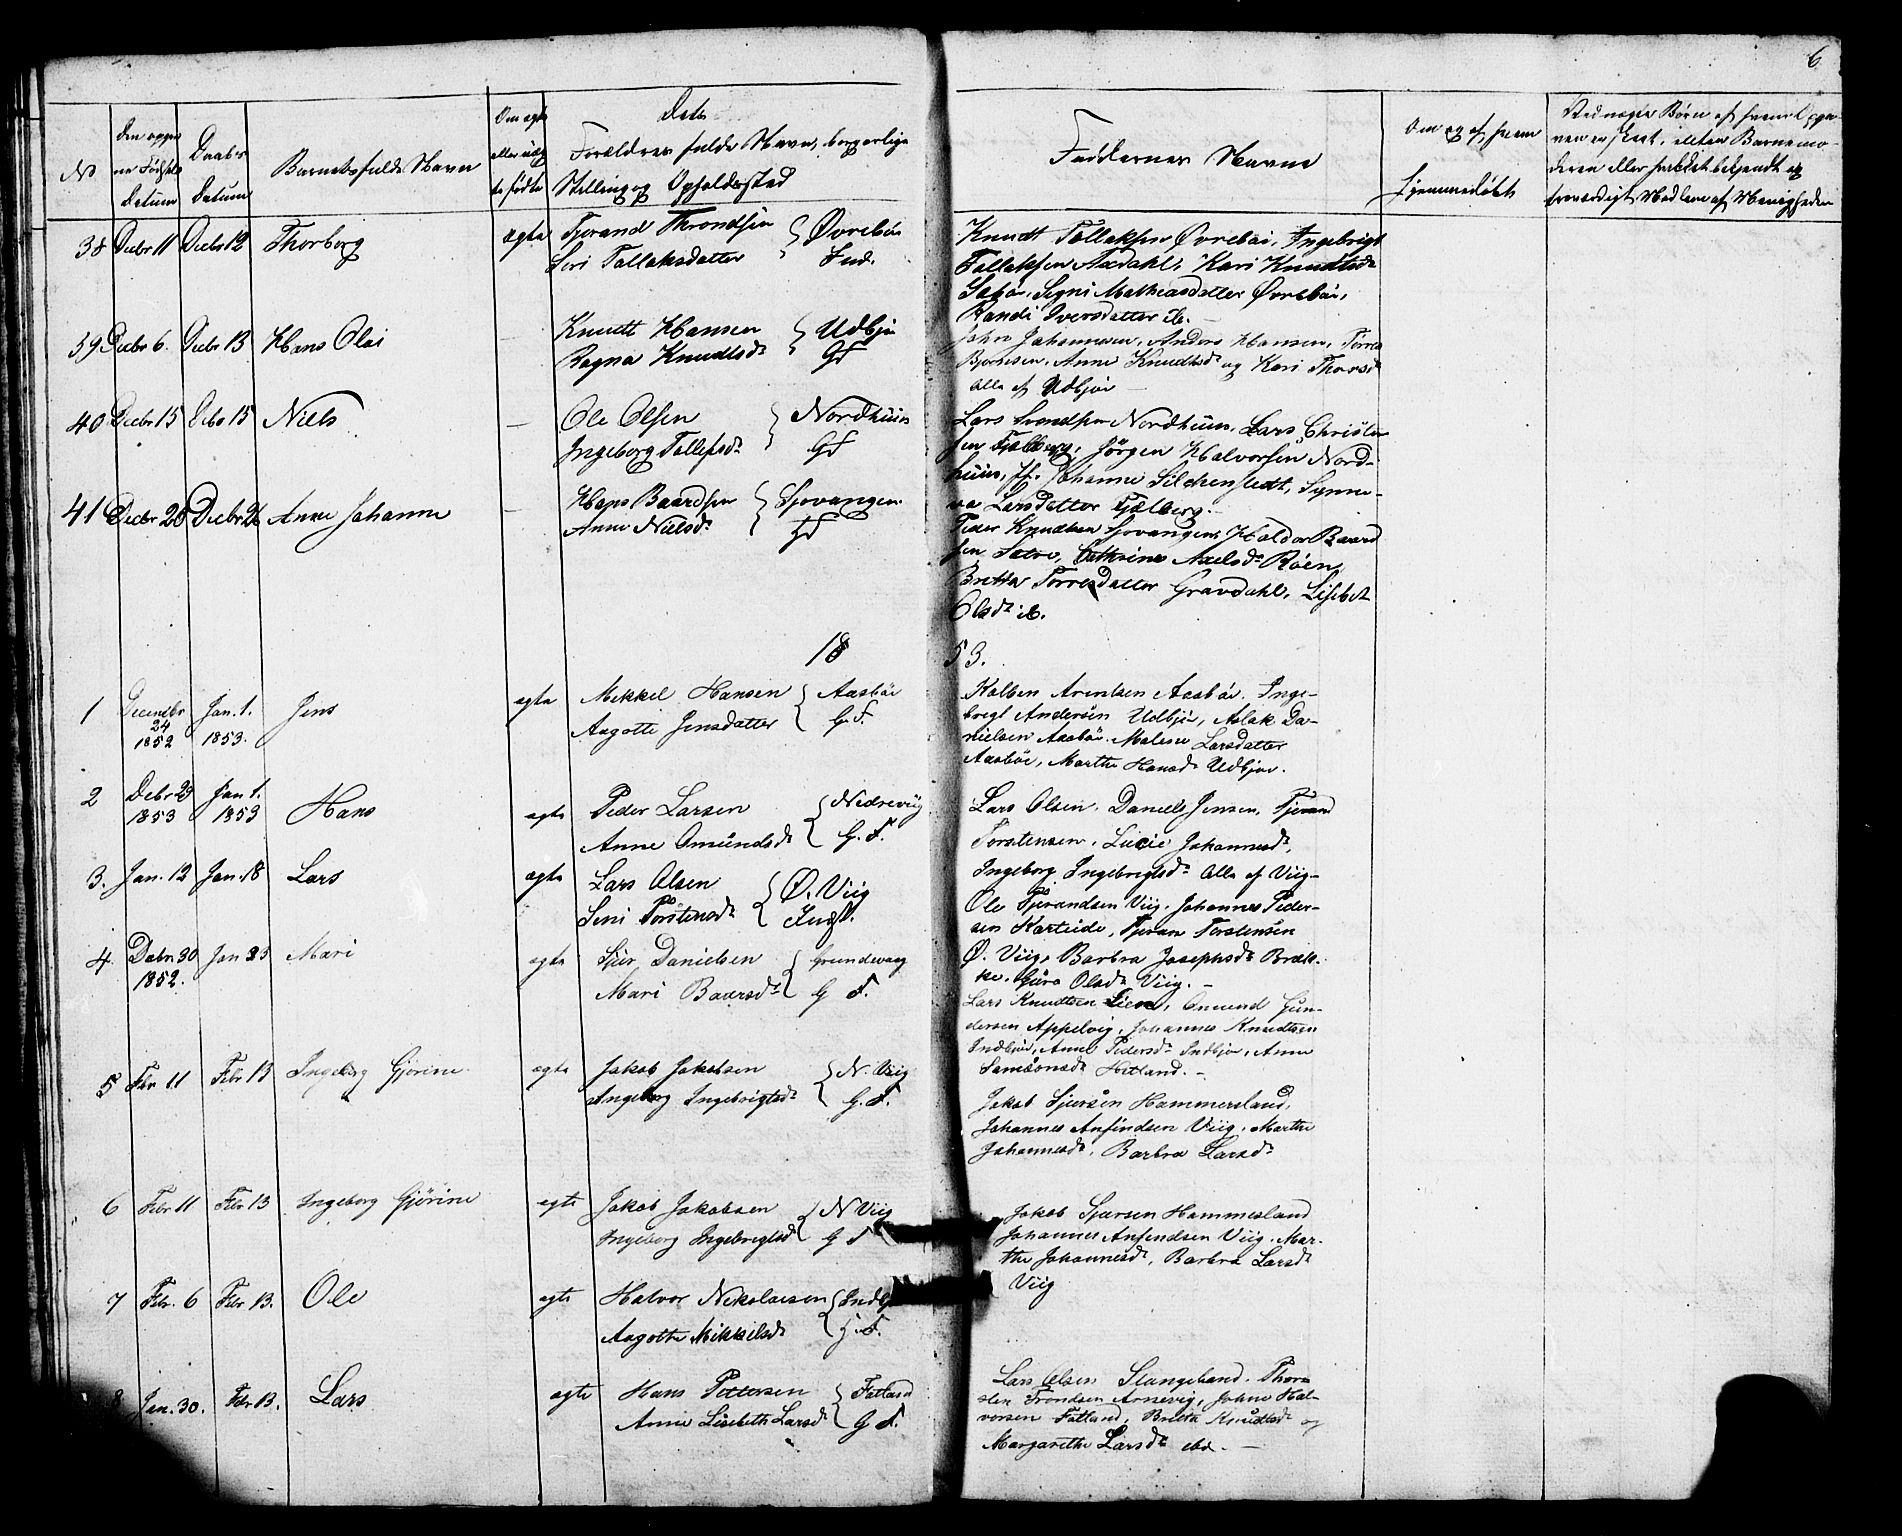 6
No
Daab's
Datum
Barnets fulde Navn
Om ægte
eller uæg
te fødte
Dets
Forældres fulde Navn, borgerlige
Stilling og Opholdssted
Faddernes Navne
Om og af hvem
hjemmedøbt
38 Decbr 11 Decbr 12 Thorborg ægte Tjerand Throndsen Øvrebøe
Siri Tollaksdatter Ind.
Knudt Tollaksen Øvrebøe, Ingebrigt
Tollaksen Axdahl, Kari Knudtsdr
Signi Mathiasdatter Øvrebøe,
Randi Iversdatter ib.
39 Decbr 6. Decbr 13 Hans Olai Knudt Hansen Udbjø
Ragna Knudtsdr Gf
John Johannesen, Anders Hansen, Torres
Bjørnsen, Anne Knudtsdr og Kari Thorsdr
Alle af Udbjøe
40 Decbr 15 Niels — Ole Olsen Nordhuus
Ingeborg Tollefsdr Gf
Lars Svendsen Nordhuus, Lars Christen
sen Fjelberg, Jørgen Halvorsen Nord-
huus, Johanne Silchenstedt, Synne-
va Larsdatter Fjelberg.
41 Decbr 20 Decbr 26 Anne Johanne — Hans Baardsen Sjovangen
Anne Nielsdr Gf
Peder Knudtsen Sjovangen, Haldor Baard
sen Sætre, Cathrine Axelsdr Røen,
Britha Torresdatter Gravdahl, Lisbet
Olsdr ib.
1853.
1 Decembr 24 1852 Jan. 1. 1853. Jens ægte Mikkel Hansen Aasbøe
Aagotte Jensdatter G. F.
Kolben Arentsen Aasbøe. Inge-
brigt Andersen Udbjø, Aslak Da-
nielsen Aasbøe. Malene Larsdatter
Aasbøe, Marthe Hansdr Udbjøe.
2 Debr 29 1853 Jan 1. 1853 Hans ægte Peder Larsen Nedreviig
Anne Omundsdr G. F.
Lars Olsen, Daniels Jensen, Tjerand
Torstensen, Lucie Johannesdr,
Ingeborg Ingebrigtsdr Alle af Viig
3. Jan. 12 Jan. 18 Lars ægte Lars Olsen Ø. Viig
Sini Torstensdr Indst.
Ole Tjerandsen Viig. Johannes Peder-
sen Karteide, Tjeran Torstensen
Ø. Viig, Barbra Josephsdr Bræk-
ke. Guro Olsdr Viig.
4. Debr 30 1852. Jan 23 Mari ægte Sjur Danielsen Grundevaag
Mari Baarsdr G F.
Lars Knudtsen Lien, Omund Gun-
dersen Appelvig, Johannes Knudtsen
Indbjøe, Anne Pedersdr Indbjøe, Anne
Samsonsdr Hetland.
5 Febr 11 Febr 13 Ingeborg Gjørine ægte Jakob Jakobsen N. Viig
Ingeborg Ingebrigtsdr G. F.
Jakob Sjursen Hammersland,
Johannes Anfindsen Viig. Marthe
Johannesdr, Barbra Larsdr
6 Febr 11 Febr 13 Ingeborg Gjørine ægte Jakob Jakobsen N Viig
Ingeborg Ingebrigtsdr G F
Jakob Sjursen Hammesland
Johannes Anfindsen Viig. Mar-
the Johannesdr, Barbra Larsdr
Viig
7 Febr. 6 Febr 13. Ole ægte Halvor Nikolaisen
Aagothe Mikkelsdr G. F.
8 Jan. 30. Febr 13. Lars ægte Hans Pettersen Fatland
Anne Lisbeth Larsdr G F.
Lars Olsen Stangeland. Thor-
sten Trondsen Arnevig, Johne Hal-
vorsen Fatland, Brita Knudtsdr og
Margarethe Larsdr ibd.